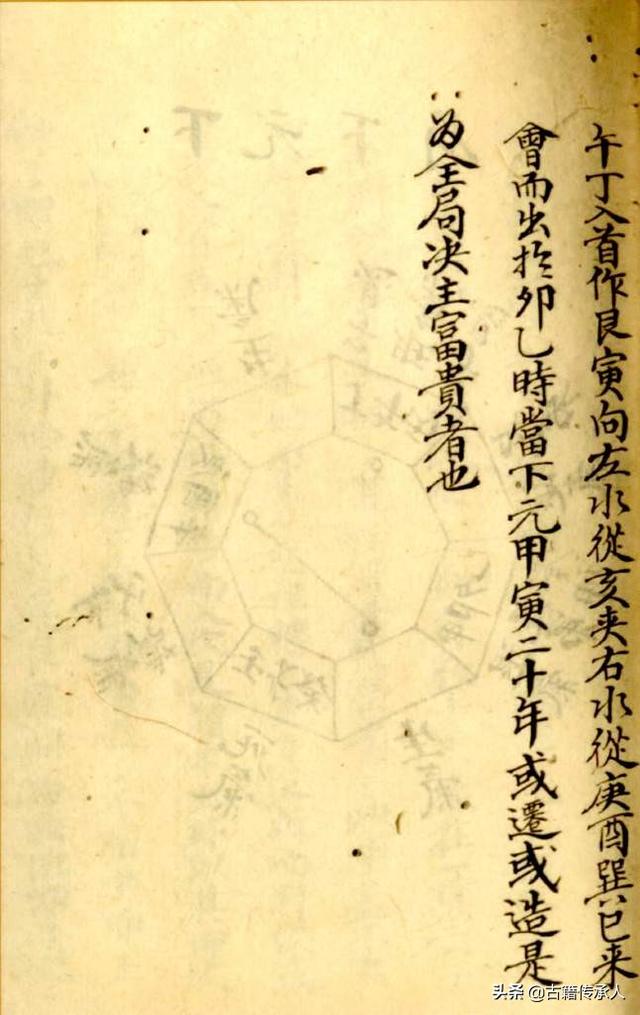 午丁入首作艮寅向左水從亥夾右水從庚酉巽巳来
會而出扵卯乙時當下元甲寅二十年或遷或造是
为全局决主富貴者也
头条 @古籍传承人